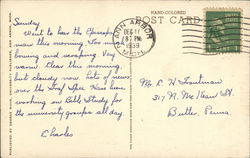 HAND-COLORED
POST CARD
ANN ARBOR
DEC 11
8 PM
1939
MICH.
Sunday
Went to hear the
man this morning. Too much
bowing and scraping. Very
warm. Clear this morning,
but cloudy now. Lots of news
over the Graf Spee. Have been
working on Bible Study for
the university groups all day.
Charles
Mr. C. H. Troutman
317 N. McKean St.
Butler, Penna.